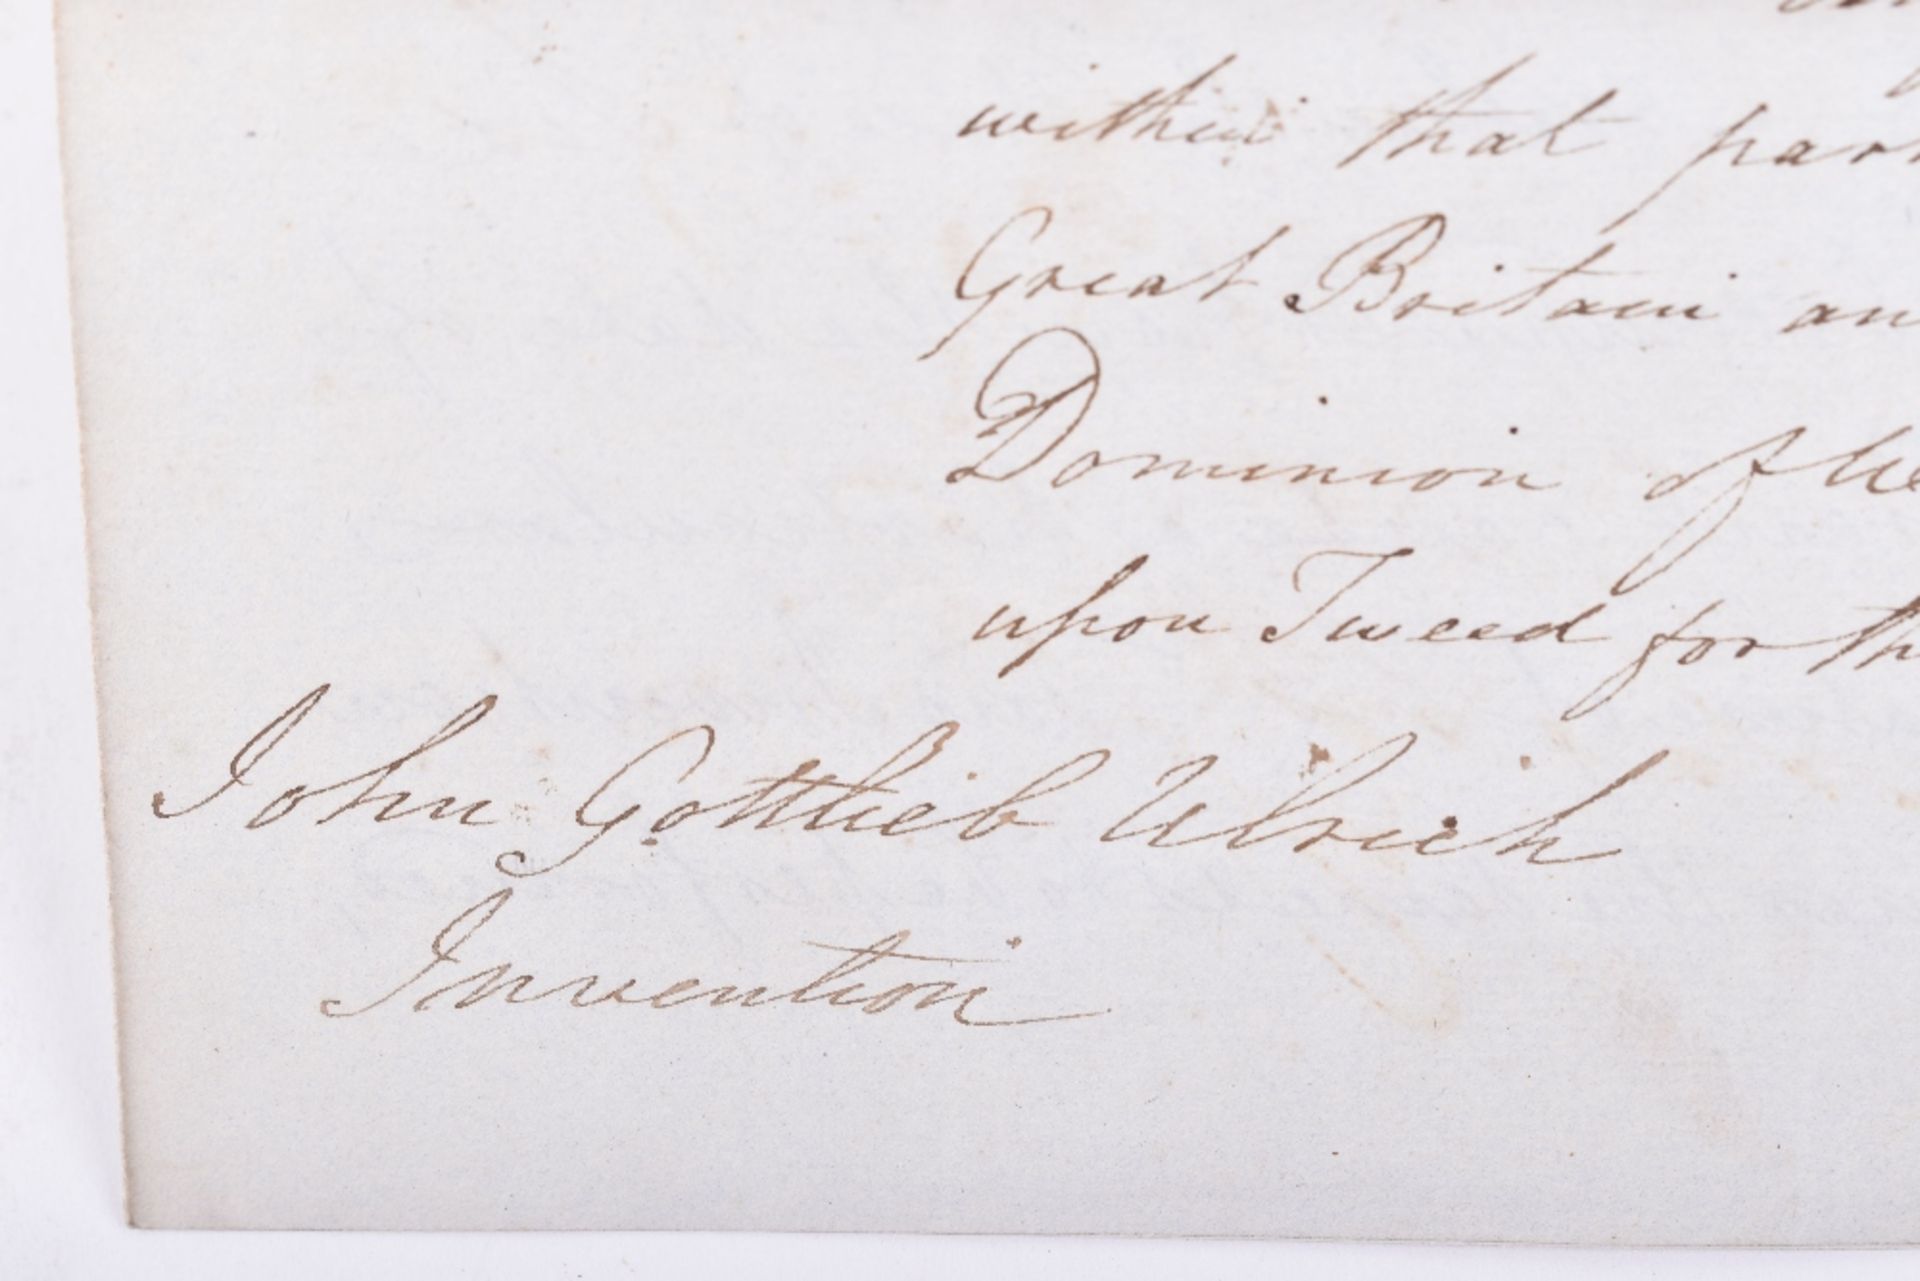 within that par
Great Britain an
Dominion of
upon Tweed for th
John Gottlieb Ulrich
Invention